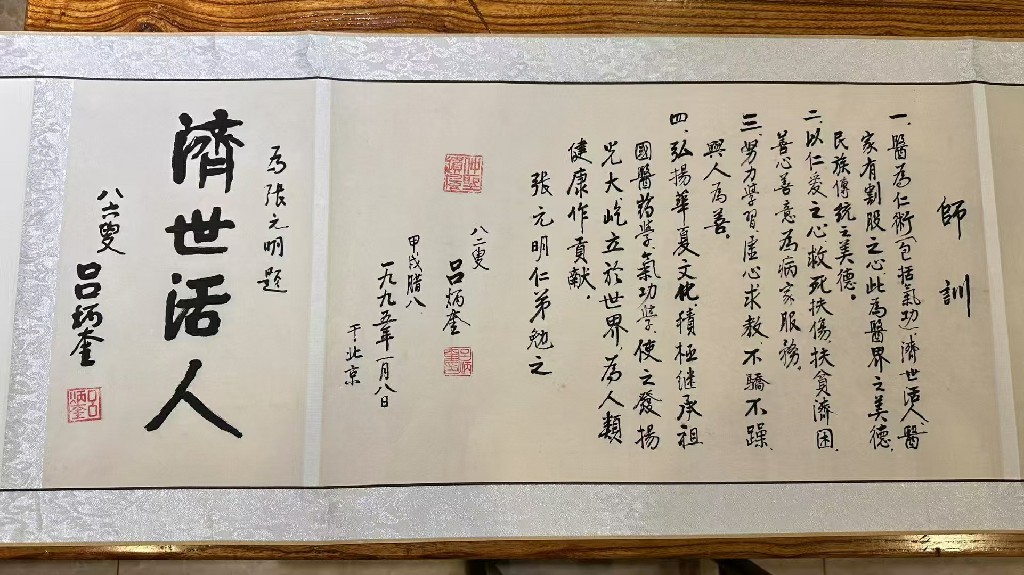 師訓
一、醫為仁術（包括氣功）、濟世活人、醫
家有割股之心、此為醫界之美德、
民族傳統之美德。
二、以仁愛之心救死扶傷、扶貧濟困、
善心善意為病家服務。
三、努力學習、虛心求教、不驕不躁、
與人為善。
四、弘揚華夏文化、積極继承祖
國醫药學、氣功學、使之發揚
光大、屹立於世界、為人類
健康作貢獻。
張元明仁弟勉之
八二叟 呂炳奎
甲戌腊八
一九九五年一月八日
于北京
為張元明題
濟世活人
八六叟 呂炳奎